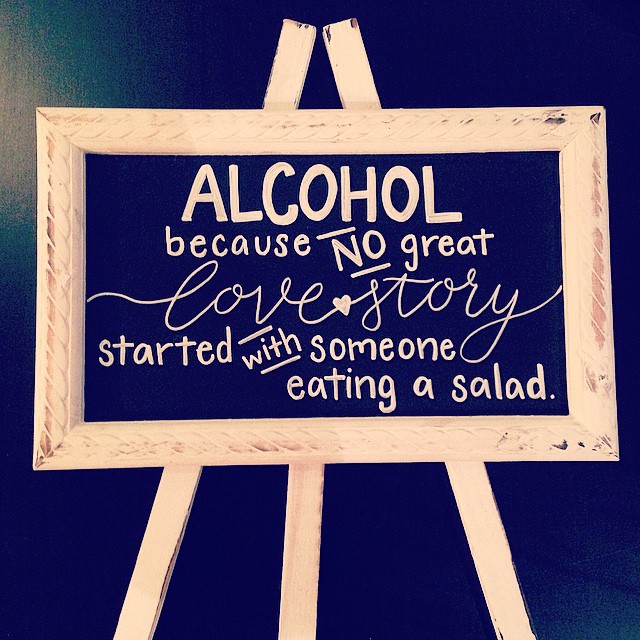 ALCOHOL
because NO great
love story
started with someone
eating a salad.